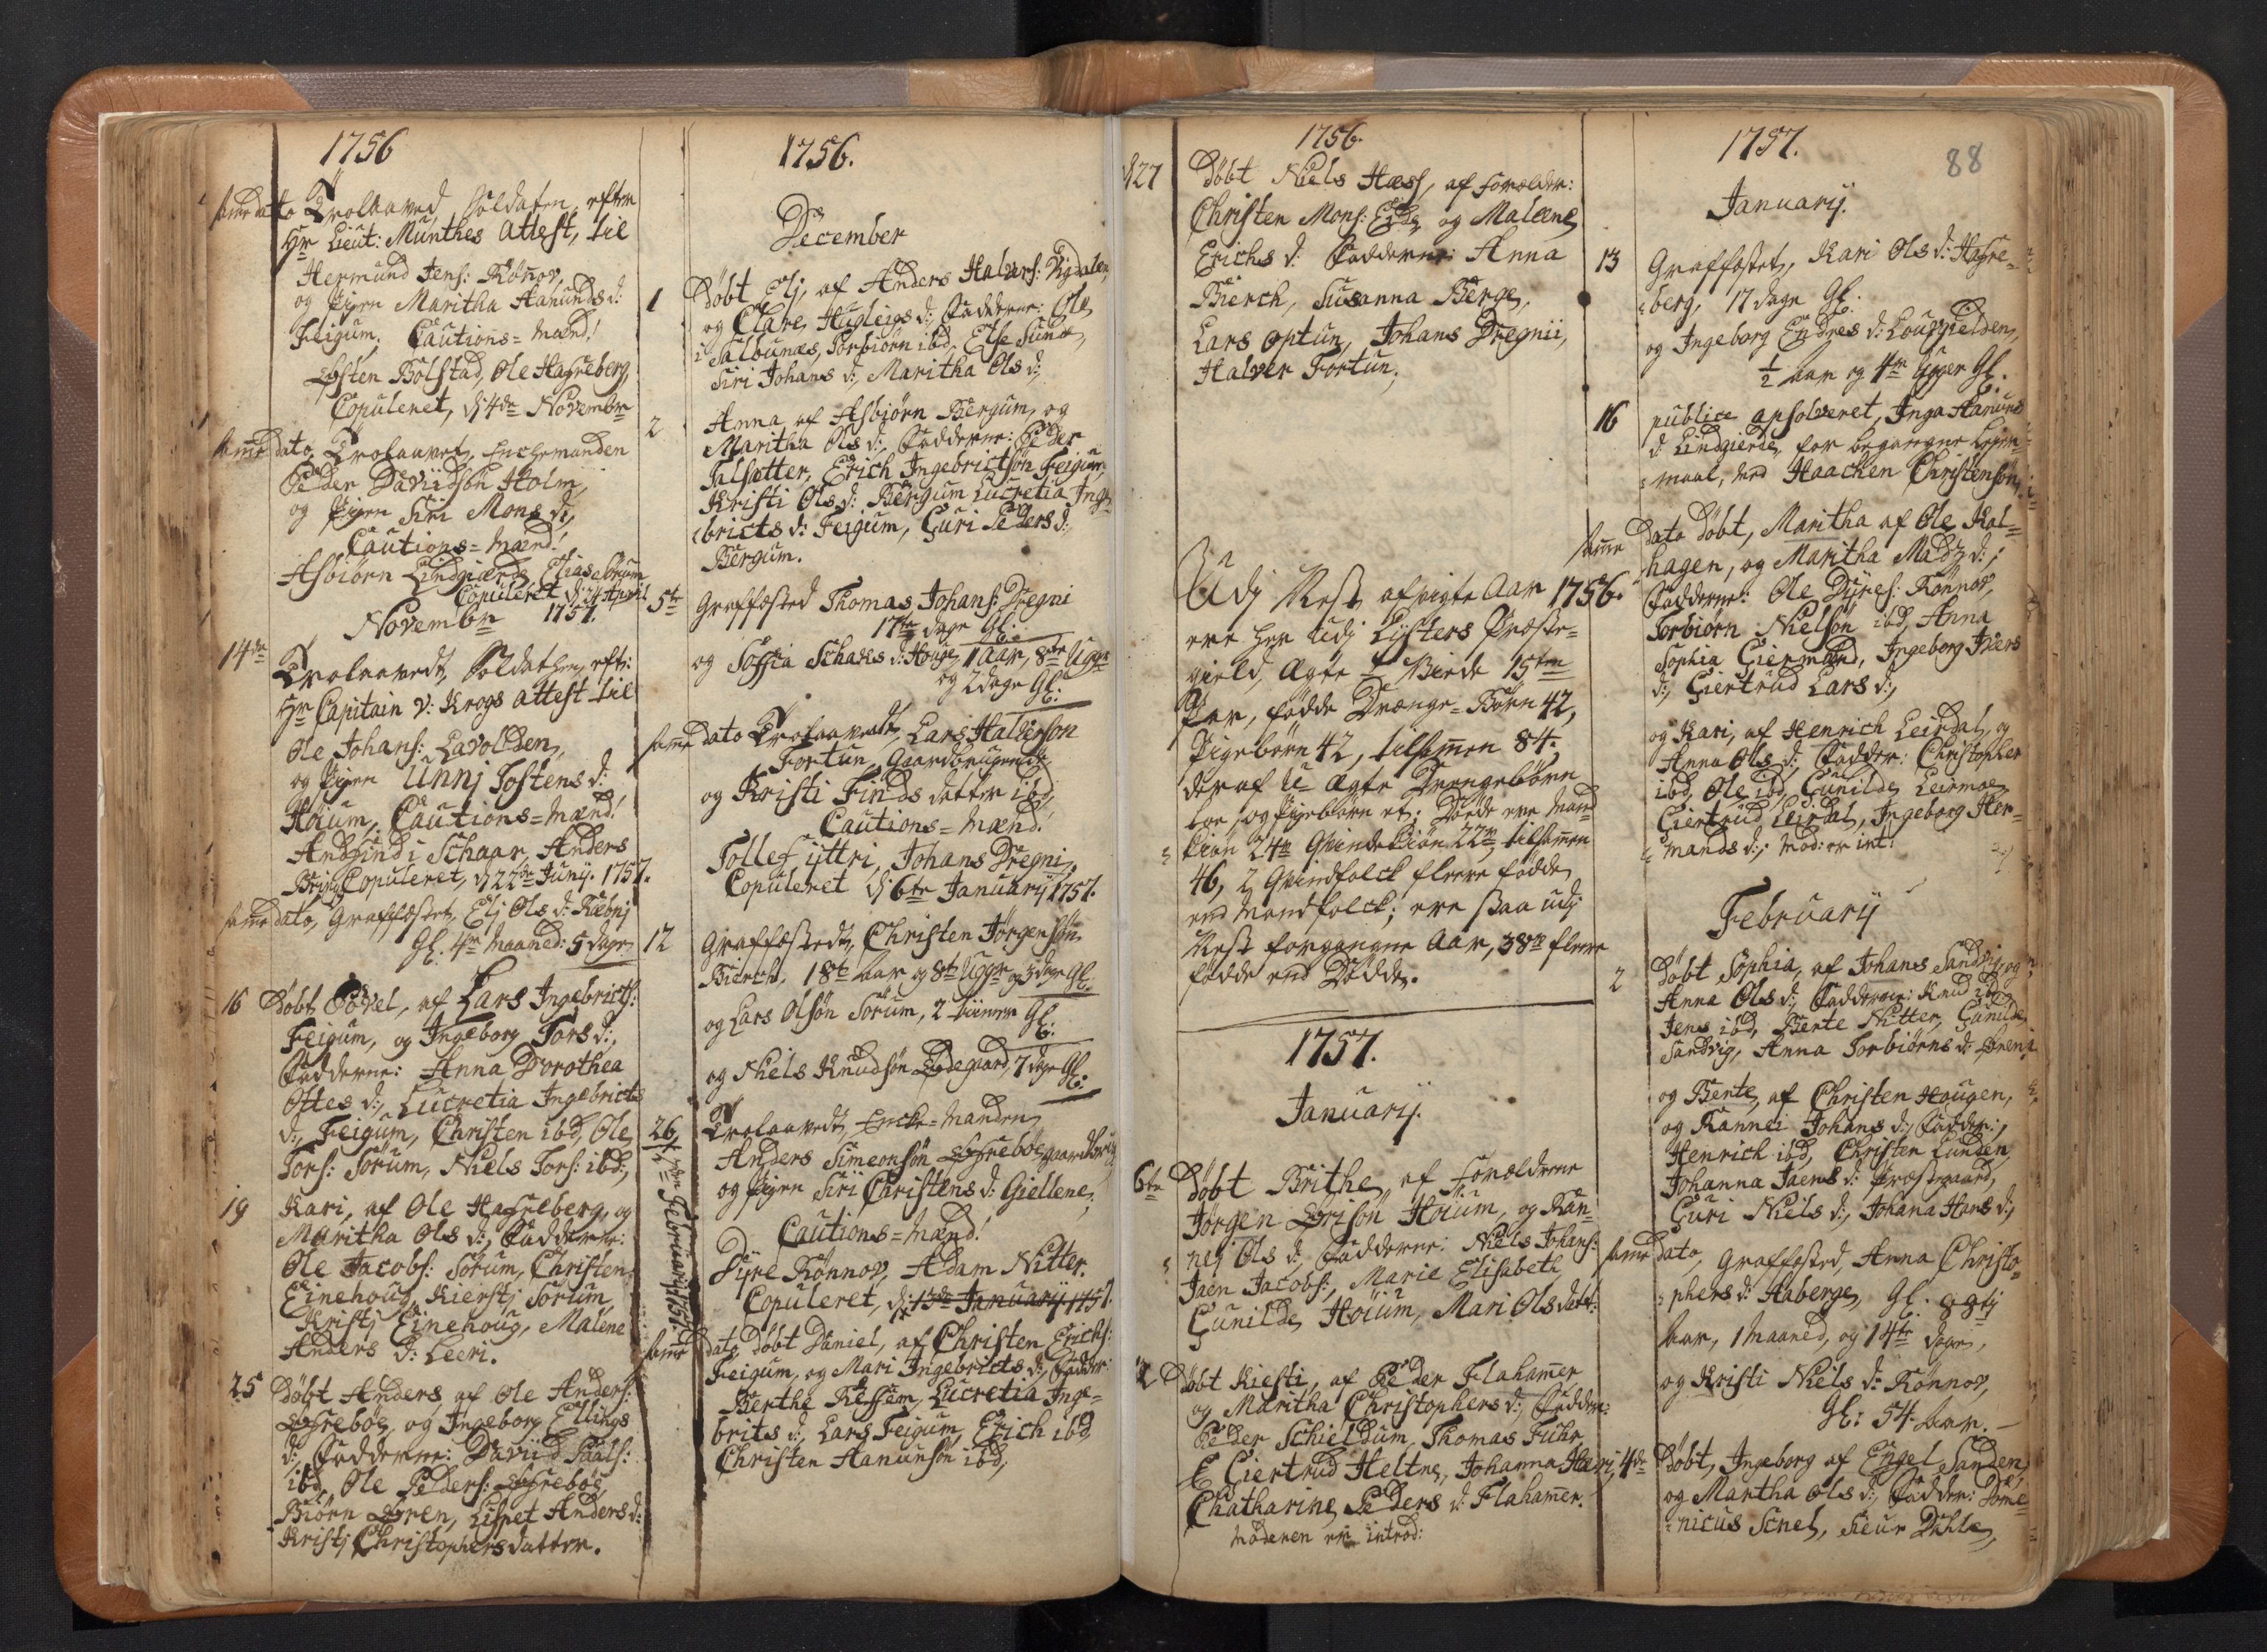 1756
same dato Trolaaved, Soldaten, efter
Hr Lieut: Munthes attest, til
Hermund Jens: Rønov,
og Pigen Maritha Aanunds d:
Feigum. Cautions-Mænd!
Østen Bolstad, Ole Hafreberg,
Copuleret, d: 4de Novembr
same dato, Trolaavet, Enchemanden
Peder Daviidsøn Holm,
og Pigen Siri Mons d:,
Cautions-Mænd!
Asbiørn Lindgierde, Elias Ebrum
Copuleret d: 24 April
Novembr 1757.
14de Trolaavedt, Soldathen, eft:
Hr Capitain v: Krogs attest til
Ole Johans: Lavollden,
og Pigen Unnj Jostens d:
Høium, Cautions-Mænd!
Andfind i Schaar, Anders
Copuleret, d: 22de Junij. 1757.
same dato, Graffæstet, Elj Ols d:
Gl. 4re Maaned: 5 dage
16 Døbt Povel, af Lars Ingebricts:
Feigum, og Ingeborg Tors d:,
Fadderne: Anna Dorothea
Ottes d:, Lucretia Ingebricts
d:, Feigum, Christen ibd, Ole
Tors: Sørum, Niels Tors: ibd:,
19 Kari, af Ole Hafreberg, og
Maritha Ols d:, Fadderne:
Ole Jacobs: Sørum, Christen
Einehoug, Kierstj Sørum
Kristj Einehoug, Malene
Anders d: Leeri.
25 Døbt Anders, af Ole Anders:
Øfrebøe, og Ingeborg Ellings
d:, Fadderne: Daviid Paals:
ibd, Ole Peders: Øfrebøe,
Biørn Øren, Lispet Anders d:
Kristj Christophersdatter.
1756.
December
1 Døbt Elj, af Anders Halvars: Vigdalen,
og Clare Hugleigs d:, Fadderne: Ole
i Salbunæs, Torbiørn ibd, Else
Siri Johans d:, Maritha Ols d:,
2 Anna, af Asbiørn Bergum, og
Maritha Ols d:, Fadderne: Peder
Talsætter, Erich Ingebrictsøn Feigum,
Kristi Ols d: Bergum Lucretia Inge
bricts d: Feigum, Guri Peders d:
Bergum.
5te Graffæsted Thomas Johans: Dregni
17te dage Gl:
og Soffia Schaks d: Houge, 1 aar, 8te Uger
og 2 dage Gl:
same dato Trolaavedt, Lars Halversøn
Fortun, Gaardbrugende,
og Kristi Finds datter ibd,
Cautions-Mænd!
Tollef ijttri, Johans Dregni,
Copuleret d: 6te Januarij 1757.
12 Graffæstedt, Christen Jørgensøn
Bierch, 18te aar og 8te Uger og 3 dage Gl.
og Lars Olsøn Sørum, 2 timer Gl:
og Niels Knudsøn Ødegaard, 7 dage Gl:
26 Trolaavedt, Encke-Manden
Anders Simeonsøn Øfrebøe,
og Pigen Siri Christens d: Giellene,
Cautions-Mænd!
Dÿre Rønnov, Adam Nitter.
Copuleret, d: 13de Januarij 1757.
Februarij 1757.
same dato Døbt Daniel, af Christen Erichs:
Feigum, og Mari Ingebricts d:, Fadder:
Berthe Ressem, Lucretia Inge-
brits d:, Lars Feigum, Erich ibd
Christen Aanunsøn ibd,
1756.
27 Døbt Niels Hæss, af Forældre:
Christen Mons: Eide, og Malene
Erichs d: Fadderne: Anna
Bierch, Susanna Berge,
Lars Optun, Johans Dregnii,
Halver Fortun;
Udj Nest afvigte Aar 1756.
ere her udj Lysters Præste-
gield, Ægte Viede 15ten
Par, fødde Drænge-Børn 42,
Pigebørn 42, tilsammen 84.
deraf U-Ægte Drengebørn
toe, og Pigebørn et; Døde ere Mand
kiøn 24re Qvindekiøn 22re, tilsammen
46, 2 Qvindfolck fleere fødde,
end Mandfolck; ere saa udj
Nest forgangne Aar, 38te fleere
fødde end Dødde.
1757.
Januarij.
6te Døbt Brithe, af Forældrene
Jørgen Ørisøn Høium, og Ran-
nej Ols d:, Fadderne: Niels Johans:
Jaen Jacobs:, Marie Elisabeth,
Gunilde Høium, Mari Ols datt:
Døbt Kiesti, af Peder Flahamer
og Maritha Christophers d:, Fadder:
Peder Schieldum, Thomas Fuhr,
Giertrud Heltne, Johanna Hæri,
Chatharine Peders d: Flahamer.
Moderen er introd:
1757.
88
Januarij.
13 Graffæstet, Kari Ols d: Hafre-
berg, 17 dage Gl:
og Ingeborg Endres d: Lougielden,
1/2 aar og 4re Uger Gl.
16 publice apsolveret, Inga Aanuns
d: Lindgierde, for begangne Leyer-
maal, med Haachen Christensøn,
same dato Døbt, Maritha af Ole Kal-
hagen, og Maritha Madz d:;
Fadderne: Ole Dÿres: Rønnov,
Torbiørn Nielsøn ibd, Anna
Sophia Giermand, Ingeborg Ivers
d:, Giertrud Lars d:,
og Kari, af Henrich Leirdal, og
Anna Ols d:, Fadder: Christopher
ibd, Ole ibd, Gunilde Leirmoe,
Giertrud Leirdal, Ingeborg Her-
mands d:; Mod: er int!
Februarij
2 Døbt Sophia, af Johans Sandvig, og
Anna Ols d:, Fadderne: Knud ibd,
Jens ibd, Bente Nitter, Gunilde
Sandvig, Anna Torbiørns d: Øren,
og Bente, af Christen Hougen,
og Rannei Johans d:, Fadder:,
Henrich ibd, Christen Lunden,
Johanna Jaens d: Præstgaard,
Guri Niels d:, Johana Hans d:,
same dato, Graffæsted, Anna Christo-
phers d: Aaberge, Gl: 88tj
aar, 1 Maaned, og 14te dage,
og Kristi Niels d: Rønnov,
Gl: 54. aar.
4de Døbt, Ingeborg af Engel Sanden,
og Martha Ols d:, Fadder: Dome-
nicus Snel, Sieur Dahle,